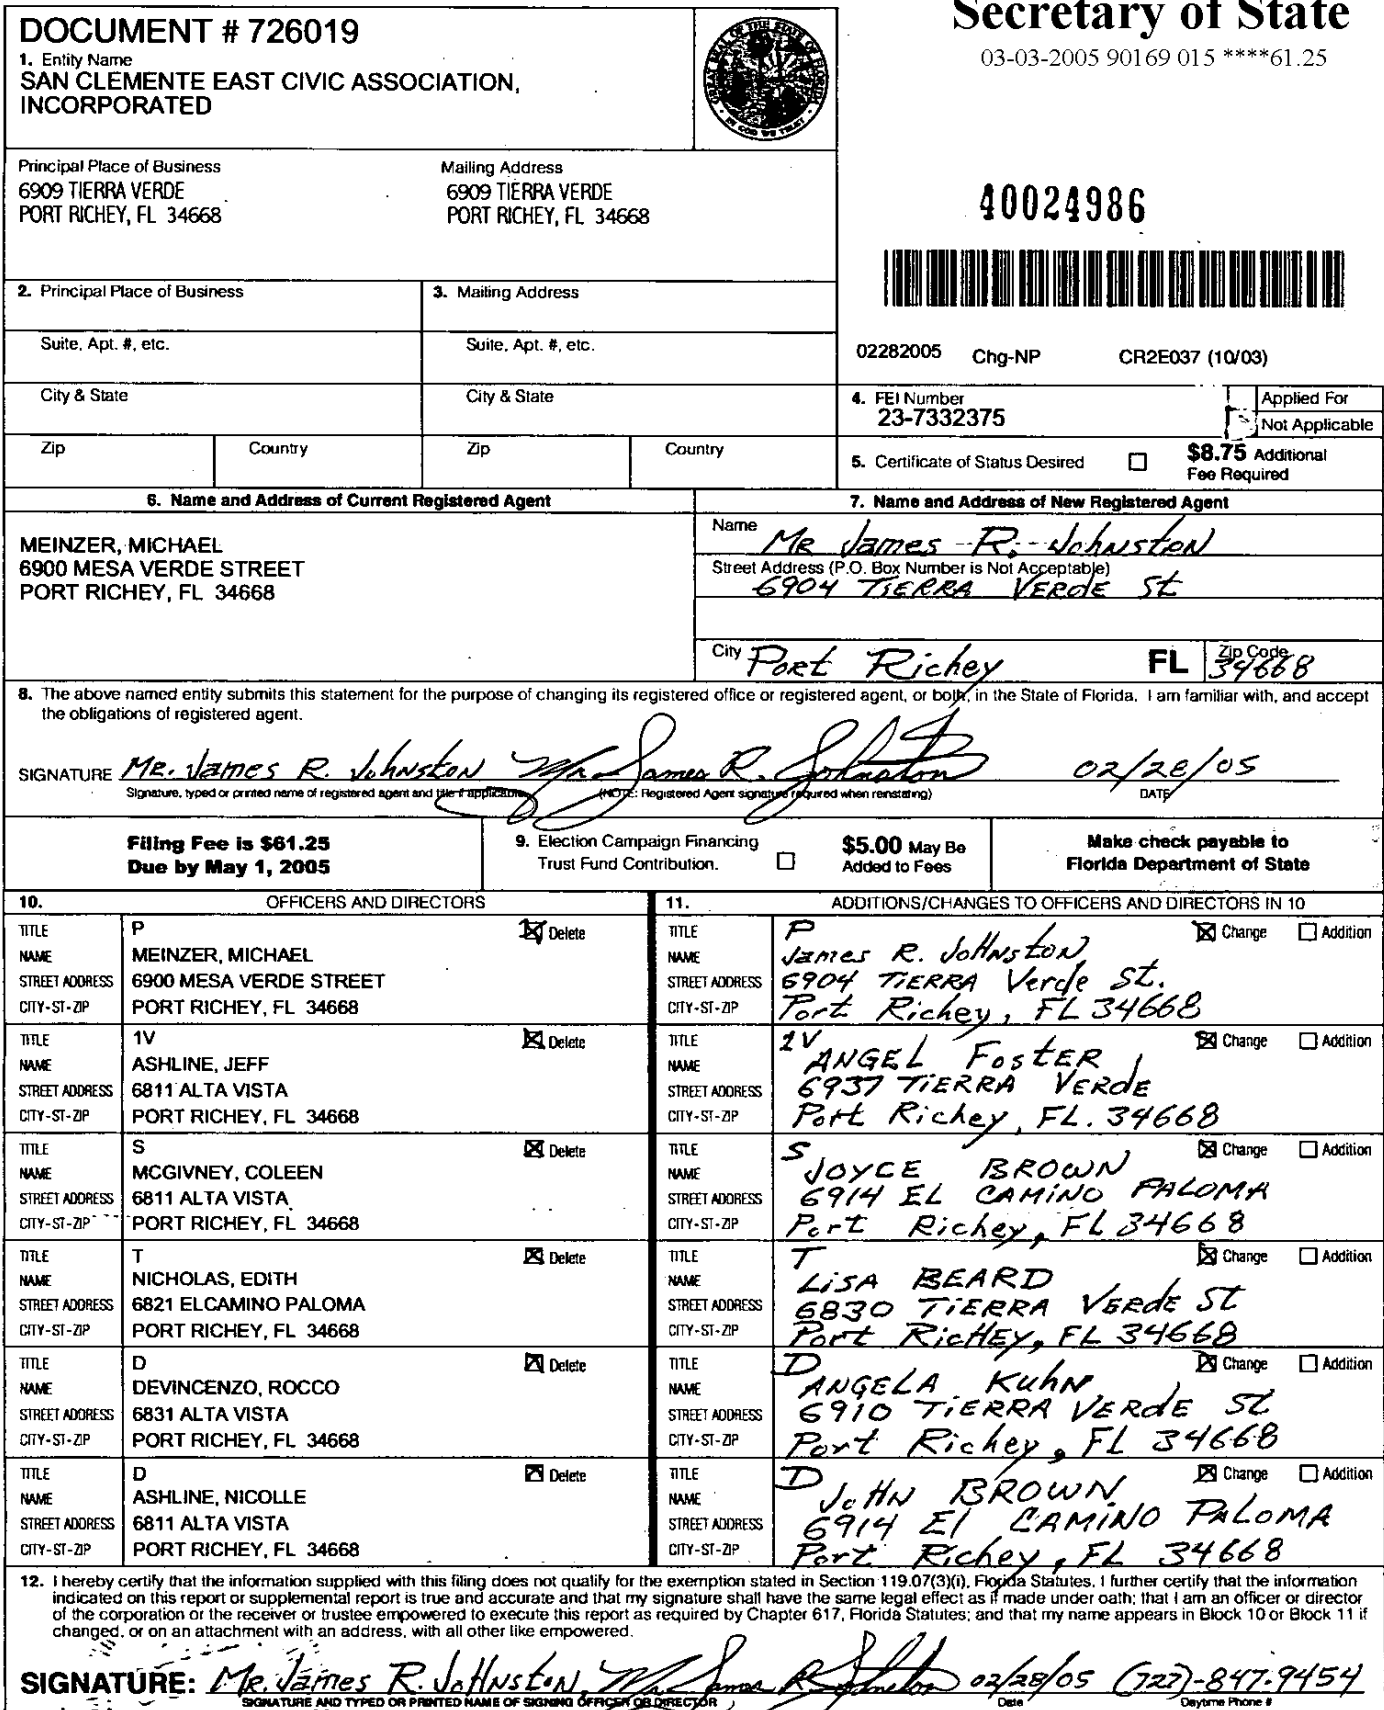 DOCUMENT # 726019
1. Entity Name
SAN CLEMENTE EAST CIVIC ASSOCIATION,
INCORPORATED
Secretary of State
03-03-2005 90169 015 ****61.25
Principal Place of Business
6909 TIERRA VERDE
PORT RICHEY, FL 34668
Mailing Address
6909 TIERRA VERDE
PORT RICHEY, FL 34668
40024986
2. Principal Place of Business
3. Mailing Address
Suite, Apt. #, etc.
Suite, Apt. #, etc.
02282005 Chg-NP CR2E037 (10/03)
City & State
City & State
4. FEI Number
23-7332375
Applied For
Not Applicable
Zip
Country
Zip
Country
5. Certificate of Status Desired
$8.75 Additional
Fee Required
6. Name and Address of Current Registered Agent
MEINZER, MICHAEL
6900 MESA VERDE STREET
PORT RICHEY, FL 34668
7. Name and Address of New Registered Agent
Name Mr James R. Johnston
Street Address (P.O. Box Number is Not Acceptable)
6904 TIERRA VERdE St
City Port Richey FL Zip Code
34668
8. The above named entity submits this statement for the purpose of changing its registered office or registered agent, or both, in the State of Florida. I am familiar with, and accept
the obligations of registered agent.
SIGNATURE Mr. James R. Johnston Mr. James R. Johnston 02/28/05
Signature, typed or printed name of registered agent and title if applicable (NOTE: Registered Agent signature required when reinstating) DATE
Filing Fee is $61.25
Due by May 1, 2005
9. Election Campaign Financing
Trust Fund Contribution.
$5.00 May Be
Added to Fees
Make check payable to
Florida Department of State
10. OFFICERS AND DIRECTORS
11. ADDITIONS/CHANGES TO OFFICERS AND DIRECTORS IN 10
TITLE P Delete
NAME MEINZER, MICHAEL
STREET ADDRESS 6900 MESA VERDE STREET
CITY-ST-ZIP PORT RICHEY, FL 34668
TITLE P Change Addition
NAME James R. JoHnston
STREET ADDRESS 6904 TIERRA Verde St.
CITY-ST-ZIP Port Richey, FL 34668
TITLE 1V Delete
NAME ASHLINE, JEFF
STREET ADDRESS 6811 ALTA VISTA
CITY-ST-ZIP PORT RICHEY, FL 34668
TITLE 1V Change Addition
NAME ANGEL FostER
STREET ADDRESS 6937 TiERRA VERdE
CITY-ST-ZIP Port Richey, FL. 34668
TITLE S Delete
NAME MCGIVNEY, COLEEN
STREET ADDRESS 6811 ALTA VISTA
CITY-ST-ZIP PORT RICHEY, FL 34668
TITLE S Change Addition
NAME JOYCE BROWN
STREET ADDRESS 6914 EL CAMiNO PALOMA
CITY-ST-ZIP Port Richey, FL 34668
TITLE T Delete
NAME NICHOLAS, EDITH
STREET ADDRESS 6821 ELCAMINO PALOMA
CITY-ST-ZIP PORT RICHEY, FL 34668
TITLE T Change Addition
NAME LiSA BEARD
STREET ADDRESS 6830 TiERRA VERdE St
CITY-ST-ZIP Port RicHEy, FL 34668
TITLE D Delete
NAME DEVINCENZO, ROCCO
STREET ADDRESS 6831 ALTA VISTA
CITY-ST-ZIP PORT RICHEY, FL 34668
TITLE D Change Addition
NAME ANGELA KuhN
STREET ADDRESS 6910 TiERRA VERdE St
CITY-ST-ZIP Port Richey, FL 34668
TITLE D Delete
NAME ASHLINE, NICOLLE
STREET ADDRESS 6811 ALTA VISTA
CITY-ST-ZIP PORT RICHEY, FL 34668
TITLE D Change Addition
NAME JoHN BROWN
STREET ADDRESS 6914 El CAMINO PALOMA
CITY-ST-ZIP Port Richey, FL 34668
12. I hereby certify that the information supplied with this filing does not qualify for the exemption stated in Section 119.07(3)(i), Florida Statutes. I further certify that the information
indicated on this report or supplemental report is true and accurate and that my signature shall have the same legal effect as if made under oath; that I am an officer or director
of the corporation or the receiver or trustee empowered to execute this report as required by Chapter 617, Florida Statutes; and that my name appears in Block 10 or Block 11 if
changed, or on an attachment with an address, with all other like empowered.
SIGNATURE: Mr. James R. JoHnston, Mr. James R Johnston 02/28/05 (727)-847-9454
SIGNATURE AND TYPED OR PRINTED NAME OF SIGNING OFFICER OR DIRECTOR Date Daytime Phone #